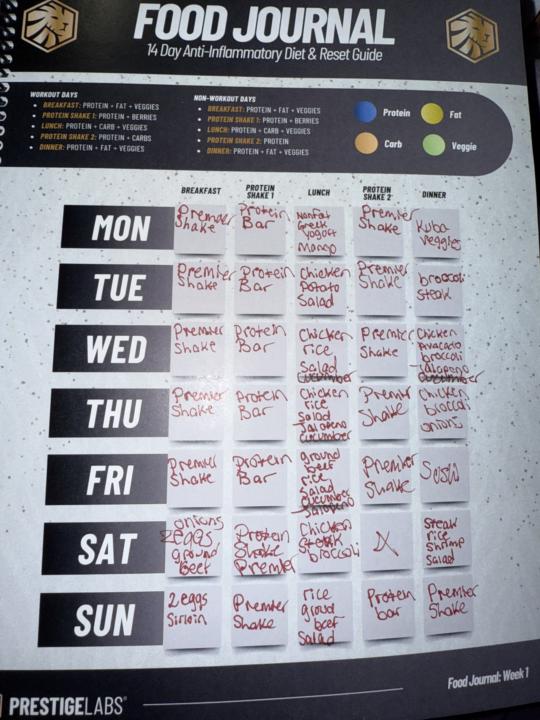 FOOD JOURNAL
14 Day Anti-Inflammatory Diet & Reset Guide
WORKOUT DAYS
• BREAKFAST: PROTEIN + FAT + VEGGIES
• PROTEIN SHAKE 1: PROTEIN + BERRIES
• LUNCH: PROTEIN + CARB + VEGGIES
• PROTEIN SHAKE 2: PROTEIN + CARBS
• DINNER: PROTEIN + FAT + VEGGIES
NON-WORKOUT DAYS
• BREAKFAST: PROTEIN + FAT + VEGGIES
• PROTEIN SHAKE 1: PROTEIN + BERRIES
• LUNCH: PROTEIN + CARB + VEGGIES
• PROTEIN SHAKE 2: PROTEIN
• DINNER: PROTEIN + FAT + VEGGIES
Protein
Fat
Carb
Veggie
BREAKFAST
PROTEIN
SHAKE 1
LUNCH
PROTEIN
SHAKE 2
DINNER
MON
Premier
Shake
Protein
Bar
Nonfat
Greek
yogurt
Mango
Premier
Shake
Kuba
Veggies
TUE
Premier
Shake
Protein
Bar
Chicken
Potato
Salad
Premier
Shake
broccoli
Steak
WED
Premier
Shake
Protein
Bar
Chicken
rice
Salad
Cucumber
Premier
Shake
Chicken
Avacado
broccoli
Jalapeno
Cucumber
THU
Premier
Shake
Protein
Bar
Chicken
rice
Salad
Jalapeno
Cucumber
Premier
Shake
Chicken
broccoli
onions
FRI
Premier
Shake
Protein
Bar
ground
beef
rice
Salad
Cucumber
Jalapeno
Premier
Shake
Sushi
SAT
onions
2 eggs
ground
Beef
Protein
Shake
Premier
Chicken
Steak
broccoli
X
Steak
rice
Shrimp
Salad
SUN
2 eggs
Sirloin
Premier
Shake
rice
groud
beef
Salad
Protein
bar
Premier
Shake
Food Journal: Week 1
PRESTIGELABS®